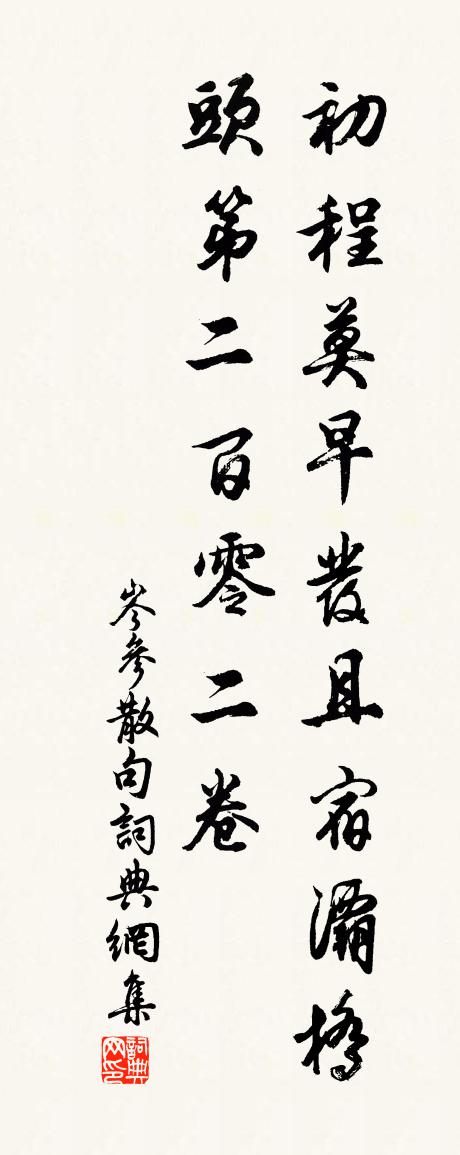 初程莫早發且宿灞橋
頭第二百零二卷
岑參散句詞典網集
詞典网印